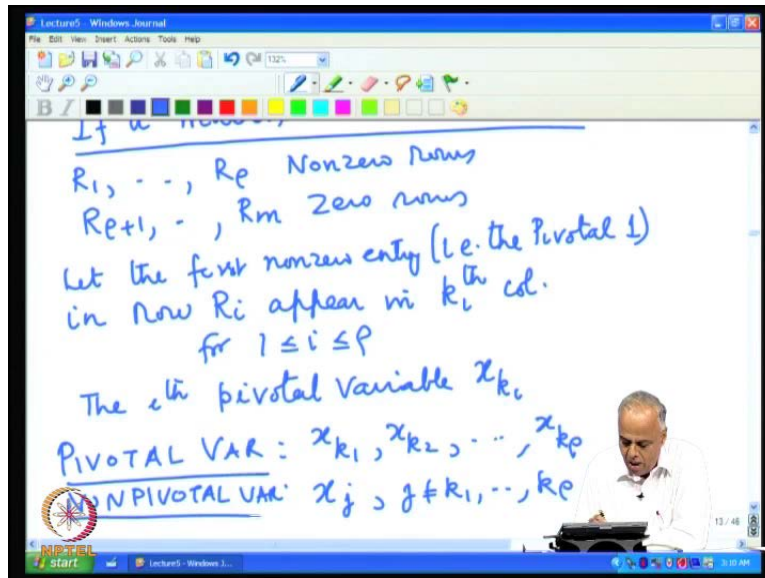 Lecture5 - Windows Journal
File Edit View Insert Actions Tools Help
132%
B I
If a
R1, - - -, Rρ Nonzero rows
Rρ+1, -, Rm Zero rows
Let the first nonzero entry (i.e. the Pivotal 1)
in row Ri appear in ki th col.
for 1 ≤ i ≤ ρ
The ith pivotal variable xki
PIVOTAL VAR: xk1, xk2, - - -, xkρ
NONPIVOTAL VAR: xj, j ≠ k1, - -, kρ
13 / 46
NPTEL
start Lecture5 - Windows J... 3:10 AM